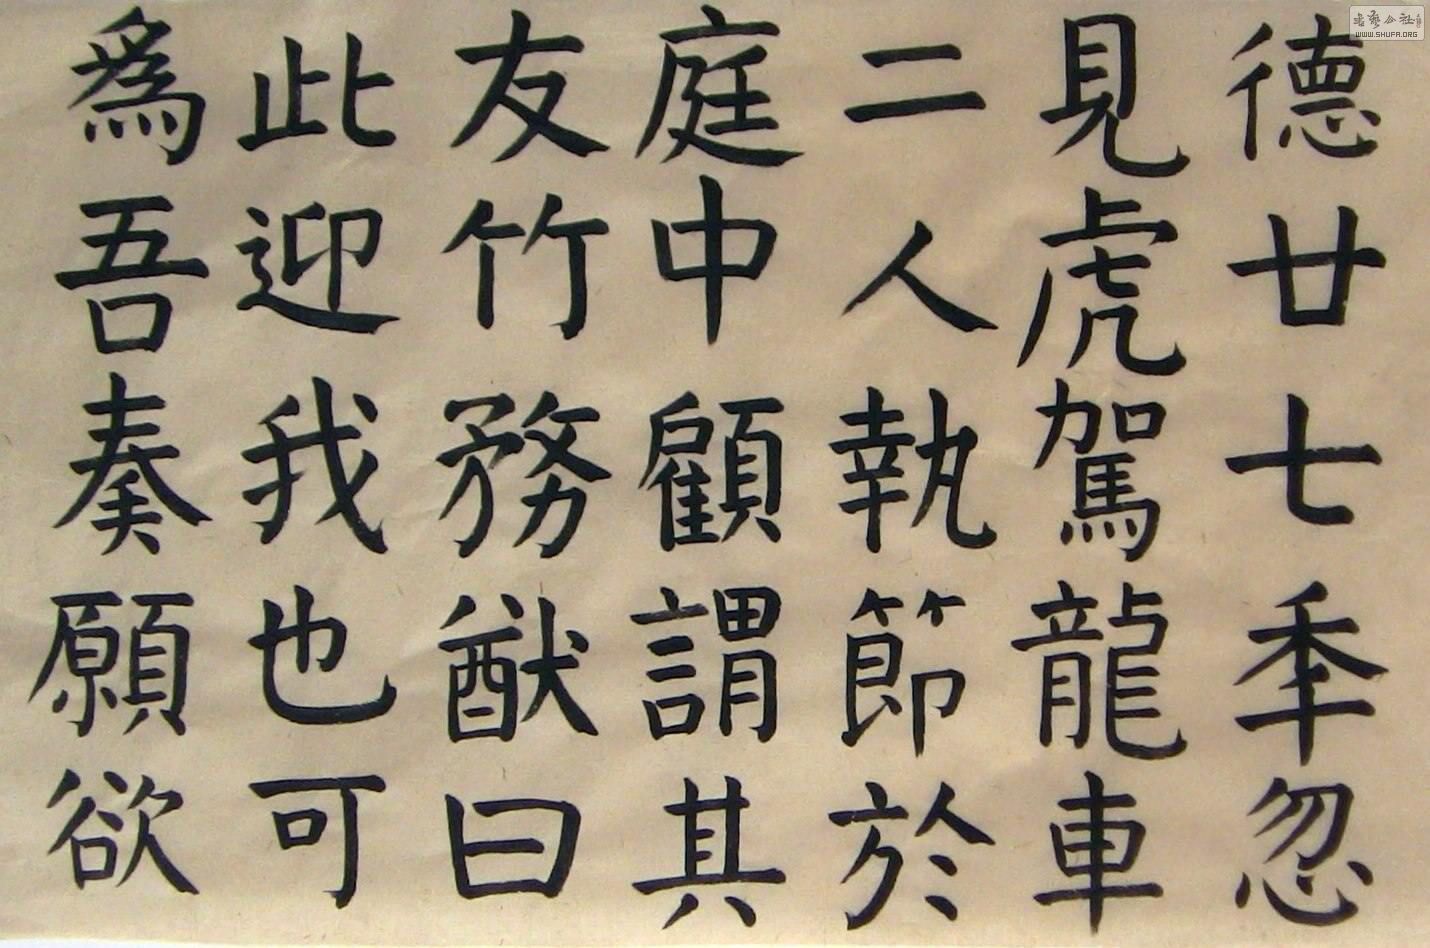 德廿七秊忽
見虎駕龍車
二人執節於
庭中顧謂其
友竹務猷曰
此迎我也可
爲吾奏願欲
WWW.SHUFA.ORG